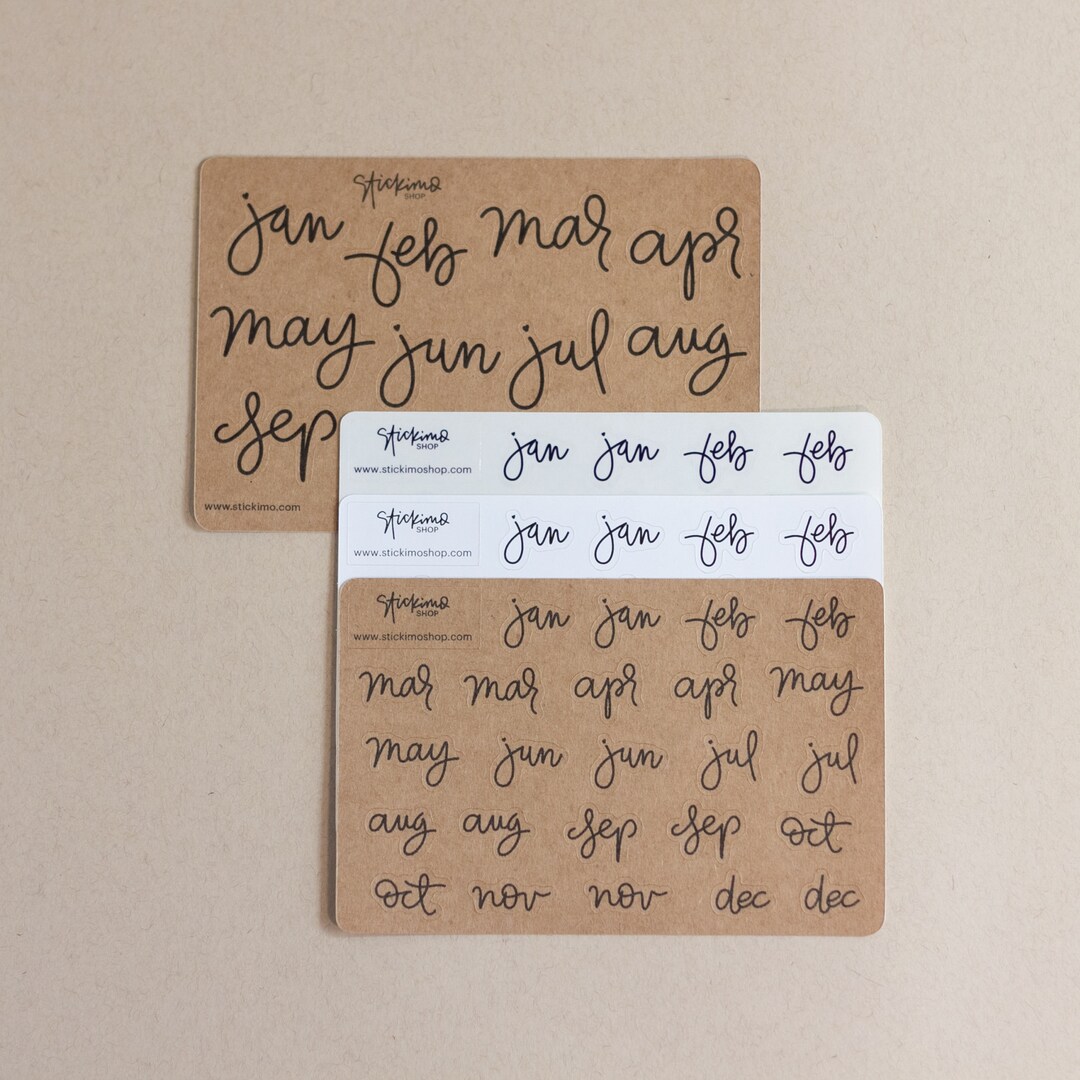 Stickimo
SHOP
jan feb mar apr
may jun jul aug
sep
www.stickimo.com
Stickimo
SHOP
www.stickimoshop.com
jan jan feb feb
Stickimo
SHOP
www.stickimoshop.com
jan jan feb feb
Stickimo
SHOP
www.stickimoshop.com
jan jan feb feb
mar mar apr apr may
may jun jun jul jul
aug aug sep sep oct
oct nov nov dec dec